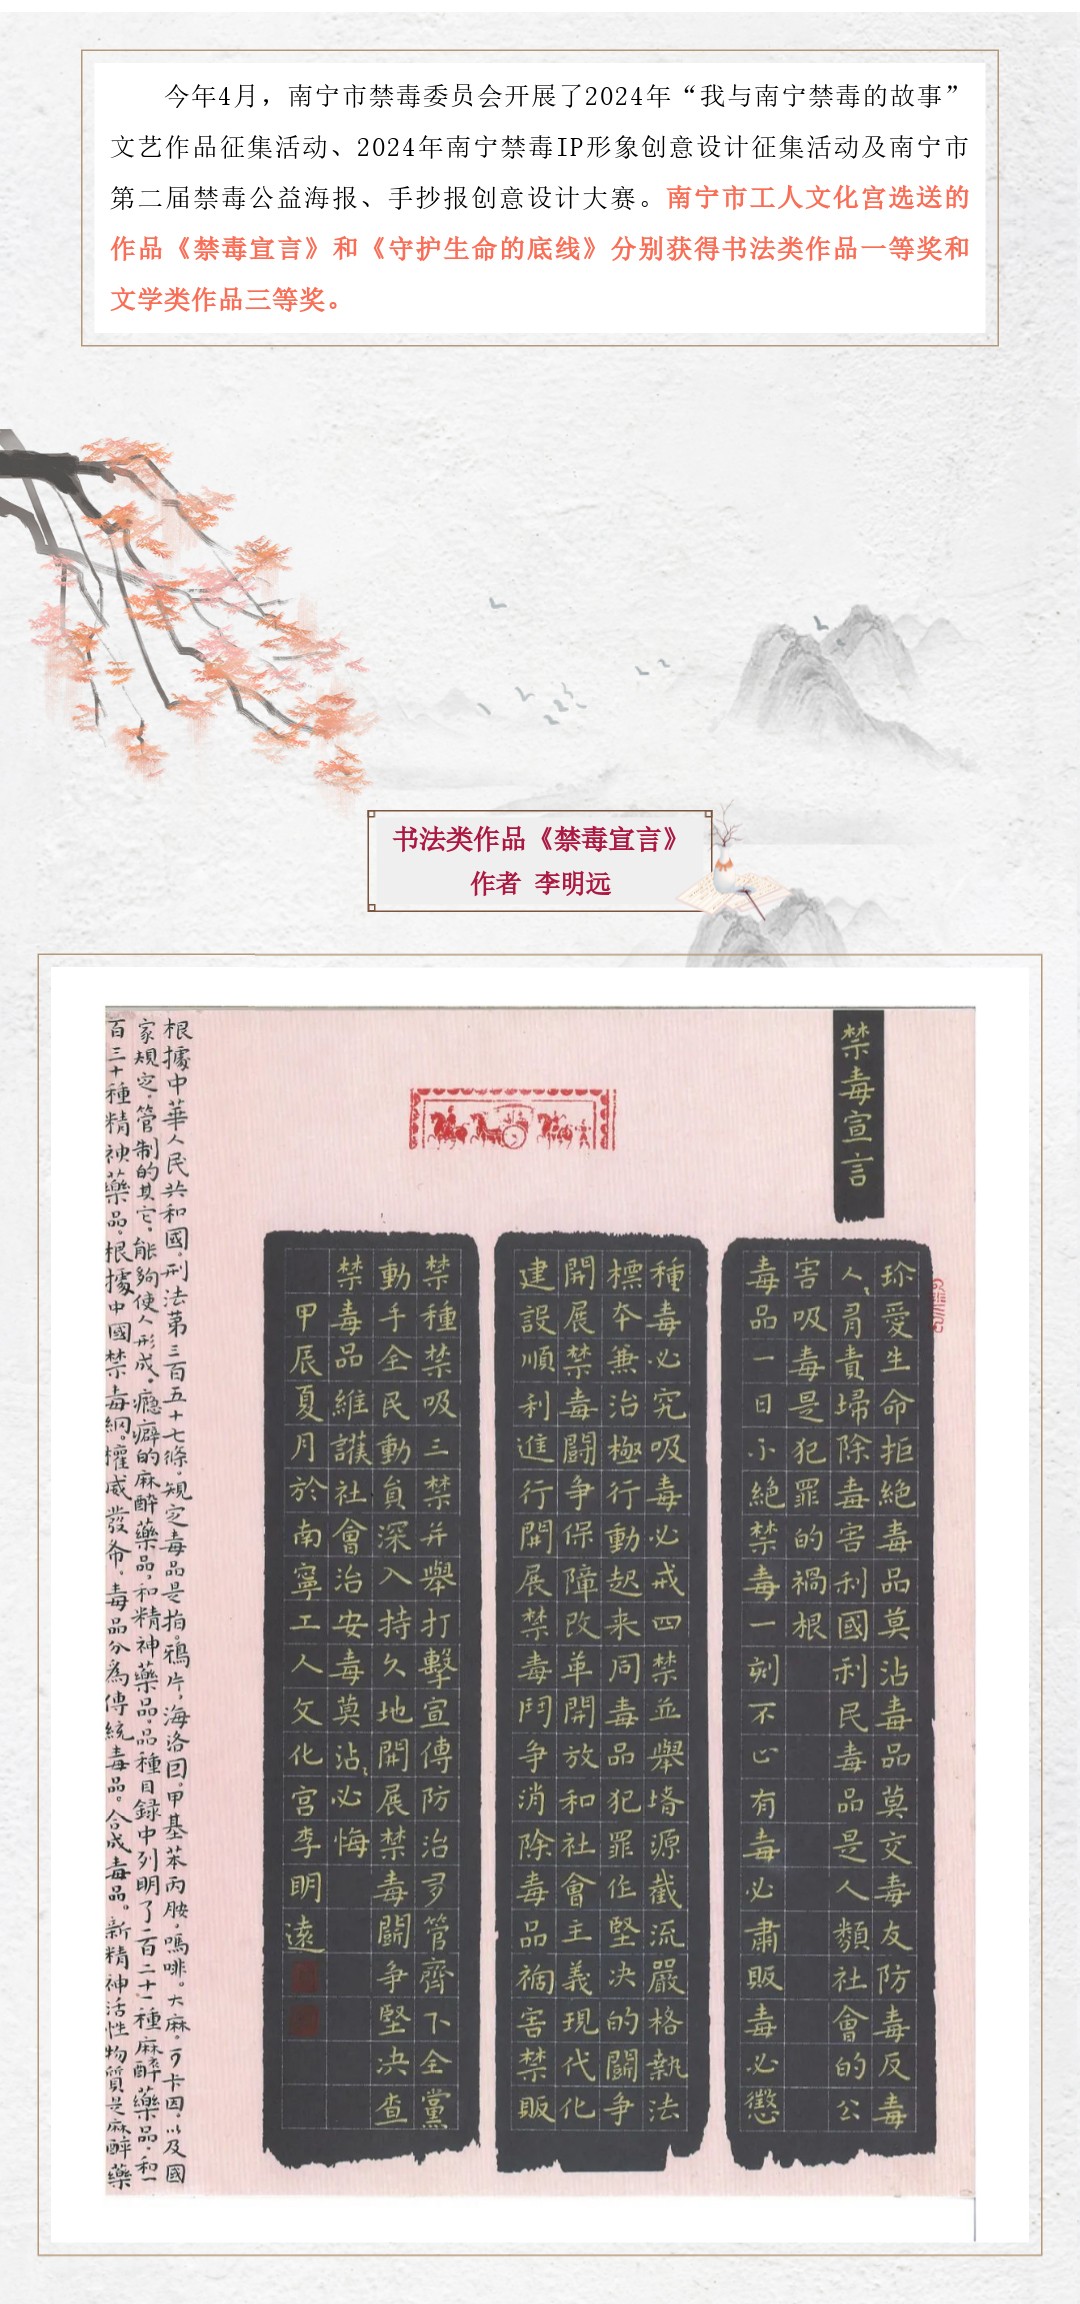 今年4月，南宁市禁毒委员会开展了2024年“我与南宁禁毒的故事”
文艺作品征集活动、2024年南宁禁毒IP形象创意设计征集活动及南宁市
第二届禁毒公益海报、手抄报创意设计大赛。南宁市工人文化宫选送的
作品《禁毒宣言》和《守护生命的底线》分别获得书法类作品一等奖和
文学类作品三等奖。
书法类作品《禁毒宣言》
作者 李明远
禁毒宣言
珍愛生命拒絕毒品莫沾毒品莫交毒友防毒反毒
人人有責掃除毒害利國利民毒品是人類社會的公
害吸毒是犯罪的禍根
毒品一日不絕禁毒一刻不止有毒必肅販毒必懲
種毒必究吸毒必戒四禁並舉堵源截流嚴格執法
標本兼治極行動起来同毒品犯罪作堅决的鬪争
開展禁毒鬪争保障改革開放和社會主義現代化
建設順利進行開展禁毒鬥争消除毒品禍害禁販
禁種禁吸三禁并舉打擊宣傳防治多管齊下全黨
動手全民動員深入持久地開展禁毒鬪争堅决查
禁毒品維護社會治安毒莫沾沾必悔
甲辰夏月於南寧工人文化宫李明遠
根據中華人民共和國刑法第三百五十七條規定毒品是指鴉片海洛因甲基苯丙胺嗎啡大麻可卡因以及國
家規定管制的其它能夠使人形成癮癖的麻醉藥品和精神藥品品種目録中列明了一百二十一種麻醉藥品和一
百三十種精神藥品根據中國禁毒網權威發布毒品分為傳統毒品合成毒品新精神活性物質是麻醉藥